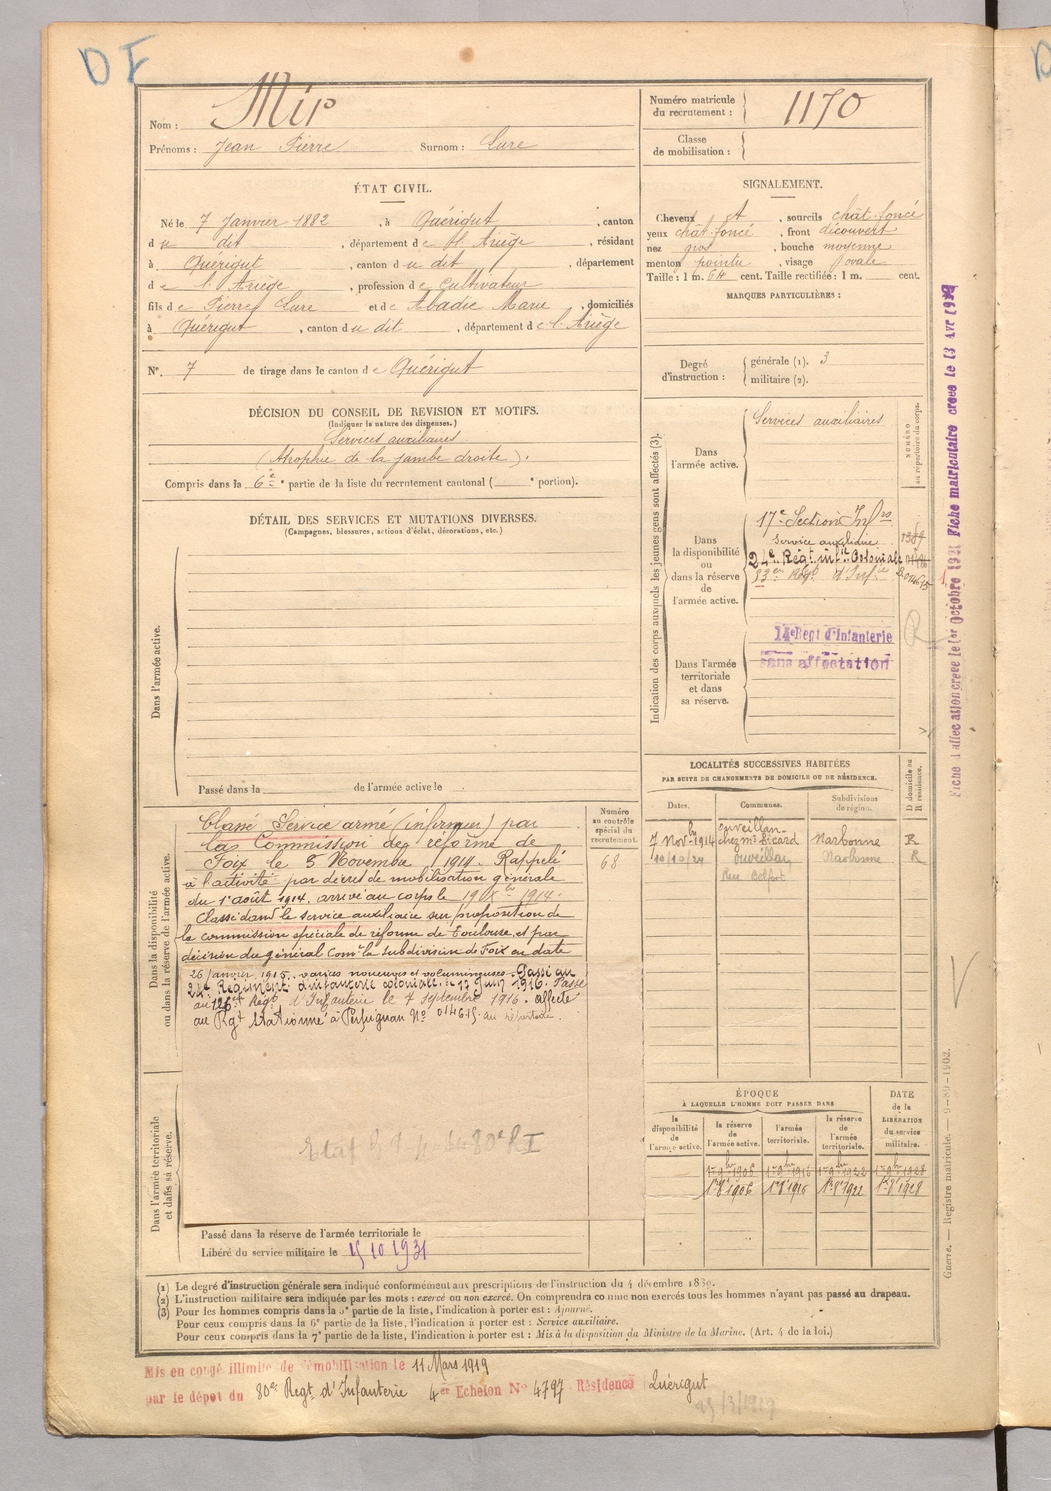 DE
Nom : Mir
Prénoms : Jean Pierre Surnom : Lure
Numéro matricule du recrutement : 1170
Classe de mobilisation :
ÉTAT CIVIL.
Né le 7 Janvier 1882, à Quérigut, canton
du dit, département de l'Ariège, résidant
à Quérigut, canton du dit, département
de l'Ariège, profession de Cultivateur
fils de Pierre Lure et de Abadie Marie, domiciliés
à Quérigut, canton du dit, département de l'Ariège
N°. 7 de tirage dans le canton de Quérigut
SIGNALEMENT.
Cheveux et, sourcils chât. foncé
yeux chât. foncé, front découvert
nez gros, bouche moyenne
menton pointu, visage ovale
Taille : 1 m. 64 cent. Taille rectifiée : 1 m. cent.
MARQUES PARTICULIÈRES :
Degré d'instruction : générale (1). 3
militaire (2).
DÉCISION DU CONSEIL DE REVISION ET MOTIFS.
(Indiquer la nature des dispenses.)
Services auxiliaires
(Atrophie de la jambe droite).
Compris dans la 6e partie de la liste du recrutement cantonal ( e portion).
DÉTAIL DES SERVICES ET MUTATIONS DIVERSES.
(Campagnes, blessures, actions d'éclat, décorations, etc.)
Dans l'armée active.
Passé dans la de l'armée active le
Indication des corps auxquels les jeunes gens sont affectés (3).
NUMÉRO au répertoire du corps.
Dans l'armée active.
Services auxiliaires
Dans la disponibilité ou dans la réserve de l'armée active.
17e Section Infrs
Service auxiliaire
24e Régt infie Coloniale
83e Régt d'Infie
Dans l'armée territoriale et dans sa réserve.
14e Regt d'Infanterie
sans affectation
LOCALITÉS SUCCESSIVES HABITÉES
PAR SUITE DE CHANGEMENTS DE DOMICILE OU DE RÉSIDENCE.
Dates. Communes. Subdivisions de région. D domicile ou R résidence.
Ouveillan
7 Novbre 1914 chez Mr Sicard Narbonne R
10/10/24 Ouveillan Narbonne R
Rue Belfort
Dans la disponibilité ou dans la réserve de l'armée active.
Numéro au contrôle spécial du recrutement.
68
Classé Service armé (infirmier) par
la Commission de réforme de
Foix le 5 Novembre 1914. Rappelé
à l'activité par décret de mobilisation générale
du 1er août 1914. arrivé au corps le 19 Xbre 1914.
Classé dans le service auxiliaire sur proposition de
la commission spéciale de réforme de Toulouse, et par
décision du général Comt la subdivision de Foix en date
26 janvier 1915. varices noueuses et volumineuses. Passé au
24e Régiment d'infanterie coloniale. 13 Juin 1916. Passé
au 126e Régt d'Infanterie le 7 septembre 1916. affecté
au Rgt Stationné à Perpignan N° 014615 au répertoire.
Dans l'armée territoriale et dans sa réserve.
Passé dans la réserve de l'armée territoriale le
Libéré du service militaire le 15 10 1931
ÉPOQUE
À LAQUELLE L'HOMME DOIT PASSER DANS
la disponibilité de l'armée active. la réserve de l'armée active. l'armée territoriale. la réserve de l'armée territoriale. DATE de la LIBÉRATION du service militaire.
1er 9bre 1906 1er 9bre 1916 1er 9bre 1922 1er 9bre 1928
1er 8bre 1906 1er 8bre 1916 1er 8bre 1922 1er 8bre 1928
(1) Le degré d'instruction générale sera indiqué conformément aux prescriptions de l'instruction du 4 décembre 1889.
(2) L'instruction militaire sera indiquée par les mots : exercé ou non exercé. On comprendra comme non exercés tous les hommes n'ayant pas passé au drapeau.
(3) Pour les hommes compris dans la 5e partie de la liste, l'indication à porter est : Ajourné.
Pour ceux compris dans la 6e partie de la liste, l'indication à porter est : Service auxiliaire.
Pour ceux compris dans la 7e partie de la liste, l'indication à porter est : Mis à la disposition du Ministre de la Marine. (Art. 4 de la loi.)
Mis en congé illimité de démobilisation le 11 Mars 1919
par le dépot du 80e Regt. d'Infanterie 4er Echelon N° 4797 Résidence Quérigut
25/3/1919
Fiche d'affectation créée le 1er Octobre 1921 Fiche matriculaire créée le 13 Avr 1929
Guerre. — Registre matricule. — 9-89-1902.